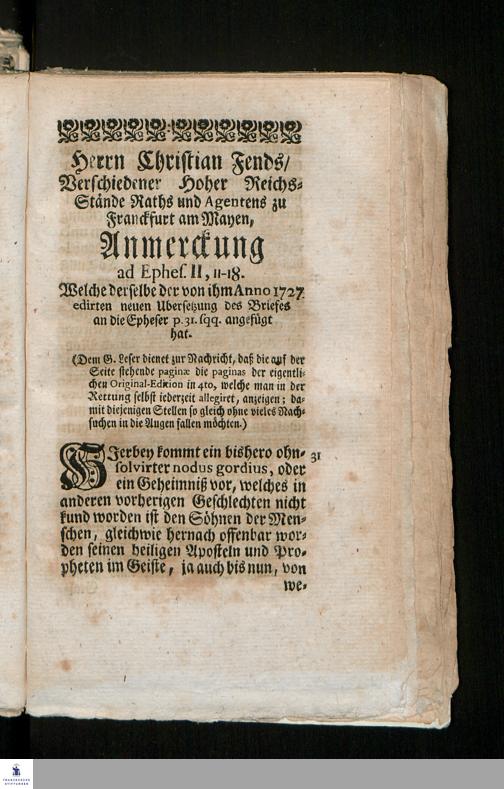 Herrn Christian Fends/
Verschiedener Hoher Reichs-
Stände Raths und Agentens zu
Franckfurt am Mayen,
Anmerckung
ad Ephes. II, 11-18.
Welche derselbe der von ihm Anno 1727.
edirten neuen Ubersetzung des Briefes
an die Epheser p. 31. sqq. angefügt
hat.
(Dem G. Leser dienet zur Nachricht, daß die auf der
Seite stehende paginæ die paginas der eigentli-
chen Original-Edition in 4to, welche man in der
Rettung selbst iederzeit allegiret, anzeigen; da-
mit diejenigen Stellen so gleich ohne vieles Nach-
suchen in die Augen fallen möchten.)
HJerbey kommt ein bishero ohn- 31
solvirter nodus gordius, oder
ein Geheimniß vor, welches in
anderen vorherigen Geschlechten nicht
kund worden ist den Söhnen der Men-
schen, gleichwie hernach offenbar wor-
den seinen heiligen Aposteln und Pro-
pheten im Geiste, ja auch bis nun, von
we-
FRANCKESCHE
STIFTUNGEN